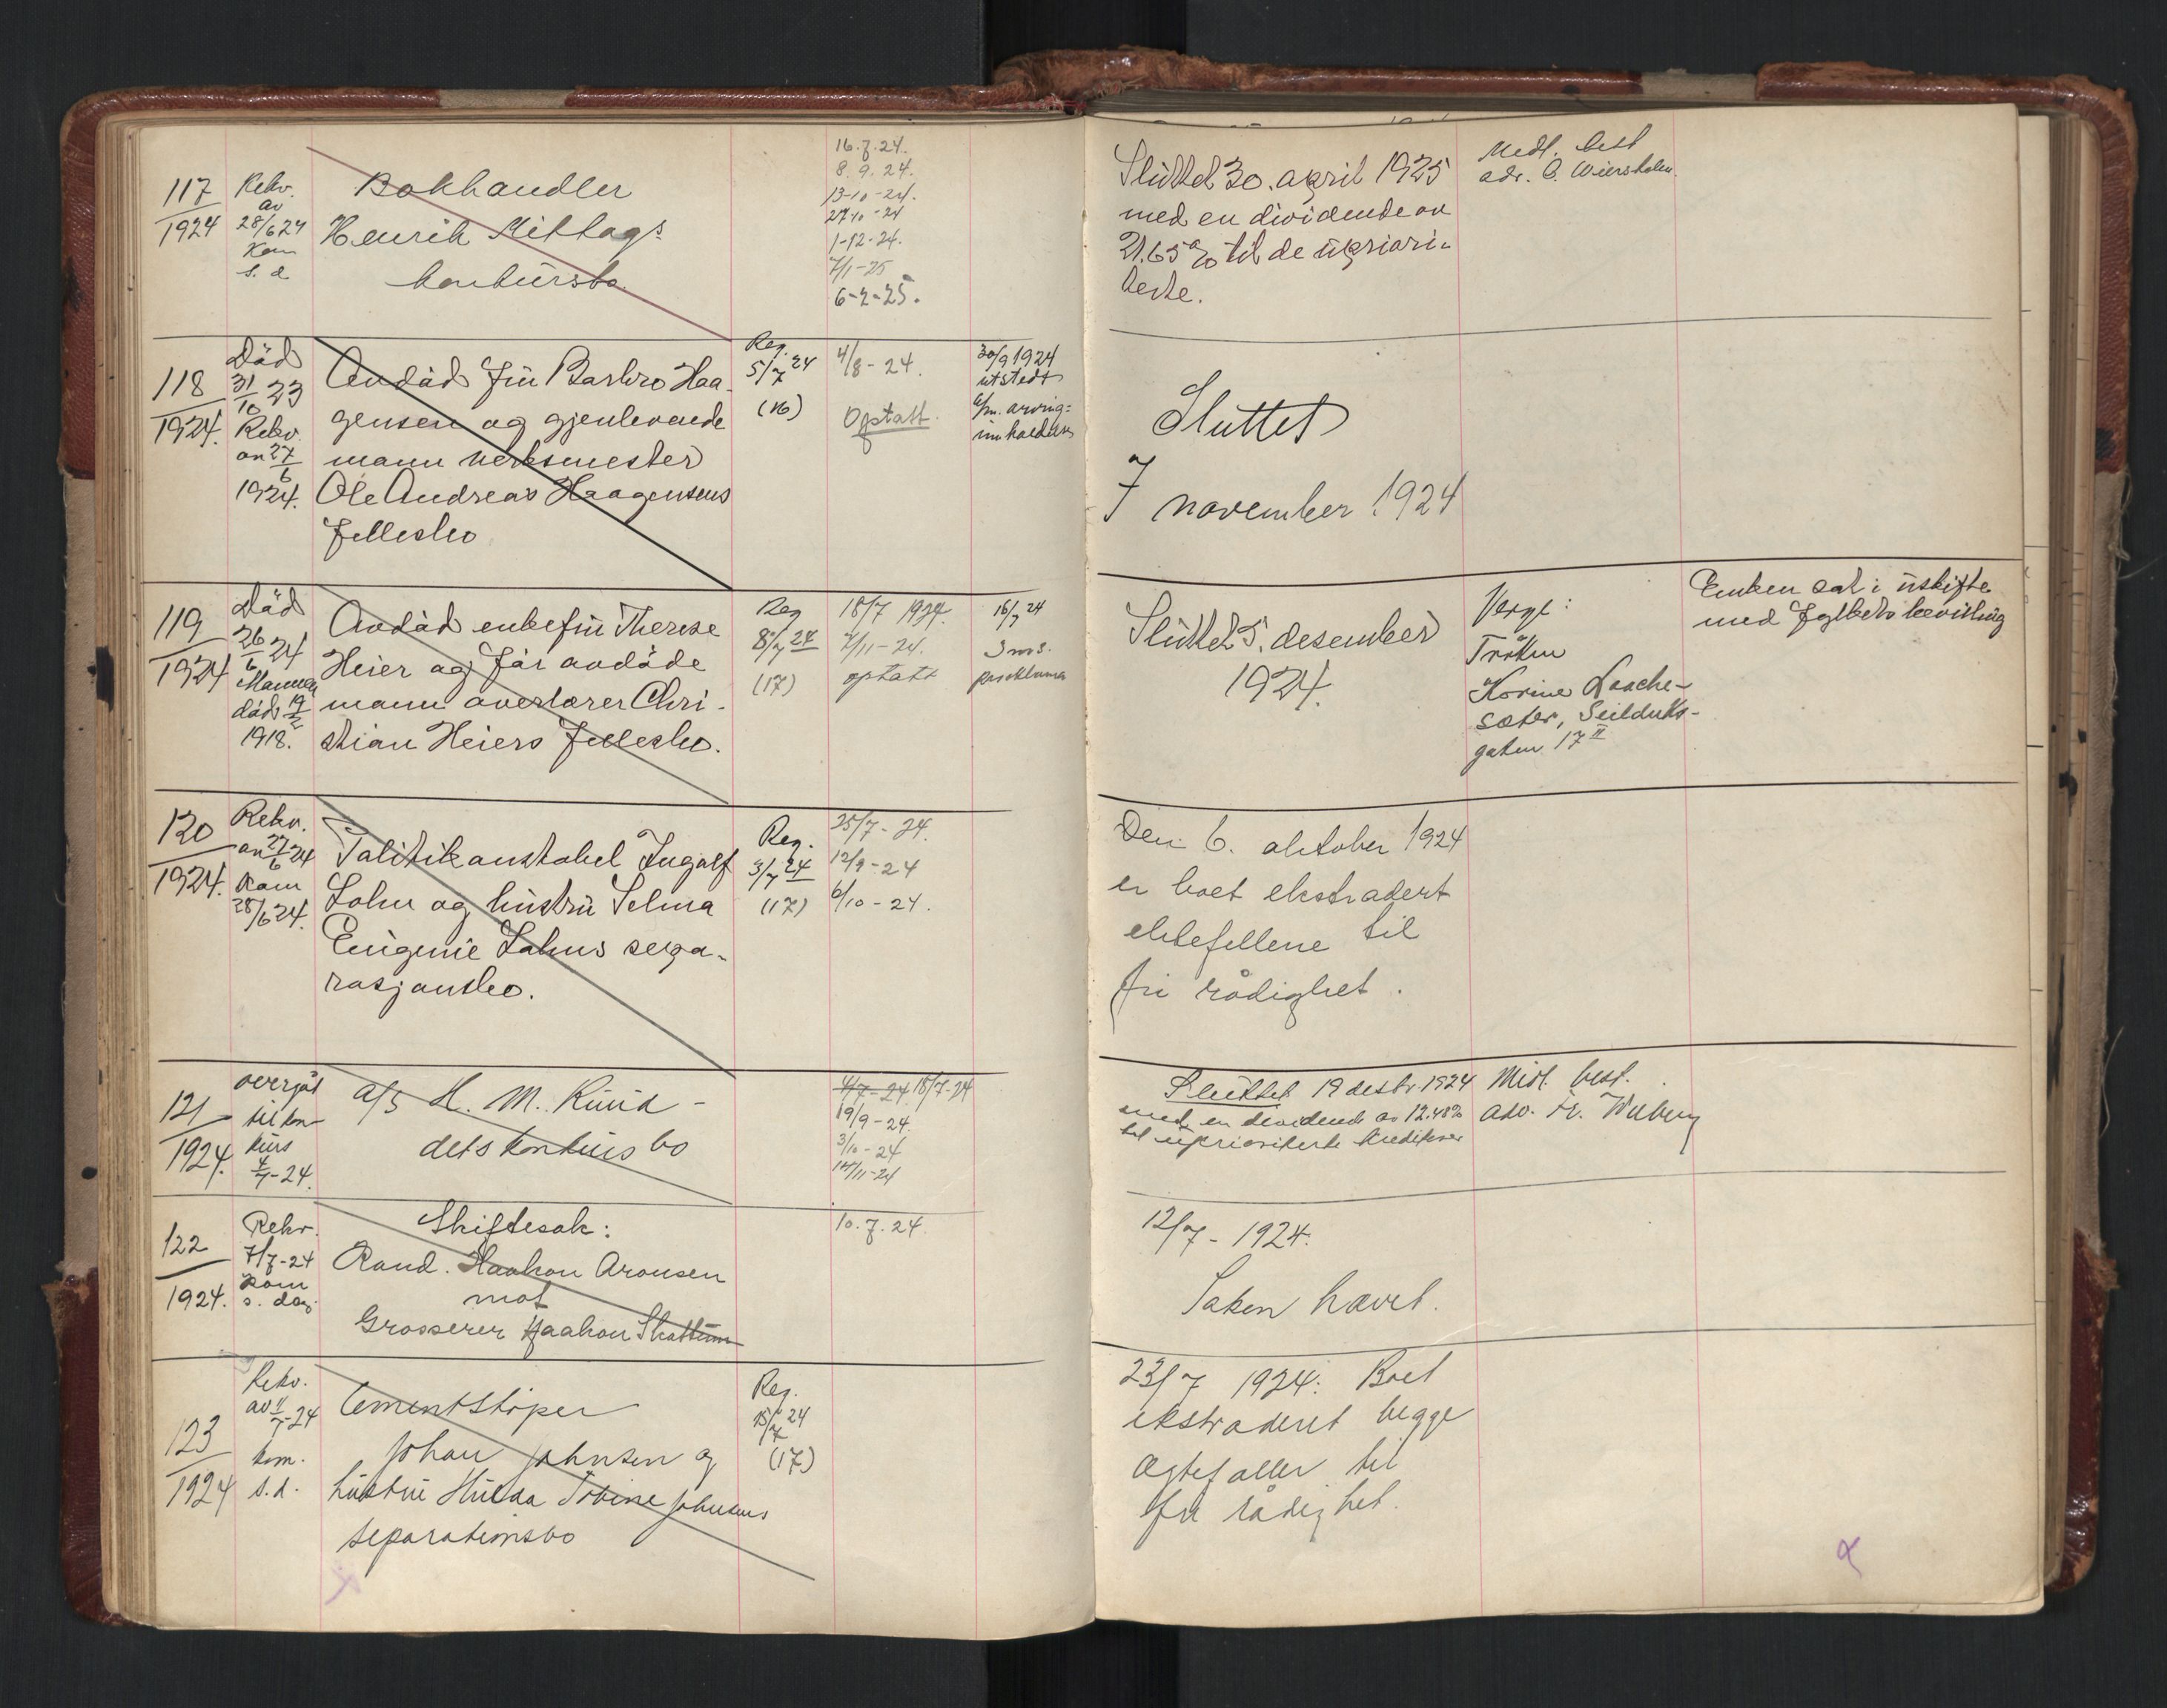 117
1924
Rekv.
av
28/6 24
Kom
s. d.
Bokhandler
Henrik Mittags
konkursbo.
16.7.24.
8.9.24.
13-10-24.
27-10-24
1-12-24.
7/1-25
6-2-25.
Sluttet 30. april 1925
med en dividende av
21.65 % til de upriori-
terte.
Medl. best
adv. C. Wiersholm.
118
1924.
Död
31/10 23
Rekv.
av 27/6
1924.
Avdöd fru Barbro Haa-
gensen og gjenlevende
mann verksmester
Ole Andreas Haagensens
fellesbo
Reg.
5/7 24
(16)
4/8-24.
Optatt.
30/9 1924
utstedt
arving-
innkaldelse
Sluttet
7 november 1924
119
1924
Död
26/6 24
Mannen
död 19/2
1918.
Avdöd enkefru Therese
Heier og för avdöde
mann overlærer Chri-
stian Heiers fellesbo.
Reg
8/7 24
(17)
18/7 1924.
7/11-24.
optatt
16/7 24
3 ms.
proklama
Sluttet 5. desember
1924.
Verge:
Fröken
Korine Laache-
sæter, Seilduks-
gaten 17 II
Enken sat i uskifte
med fylkets bevilling
120
1924.
Rekv.
av 27/6 24
Kom
28/6 24.
Politikonstabel Ingolf
Lohn og hustru Selma
Eugenie Lohns sepa-
rasjonsbo.
Reg.
3/7 24
(17)
25/7-24.
12/9-24
6/10-24.
Den 6. oktober 1924
er boet ekstradert
ektefellene til
fri rådighet.
121
1924.
overgåt
til kon-
kurs
4/7-24.
A/S H. M. Kuur-
dets konkursbo
4/7-24 18/7-24
19/9-24.
3/10-24
14/11-24
Sluttet 19 desbr. 1924
med en dividende av 12.48%
til upriorterte kreditorer
Midl. best.
adv. Fr. Wiberg
122
1924.
Rekv.
7/7-24
Kom
s. dag.
Skiftesak:
Kand. Haakon Aronsen
mot
Grosserer Haakon Skattum
10.7.24.
12/7-1924.
Saken hævet.
123
1924
Rekv.
av 11/7-24
kom.
s.d.
Cementstöper
Johan Johnsen og
hustru Hulda Tobine Johnsens
separationsbo
Reg.
15/7 24
(17)
23/7 1924: Boet
ekstraderet begge
ægtefæller til
fri rådighet.